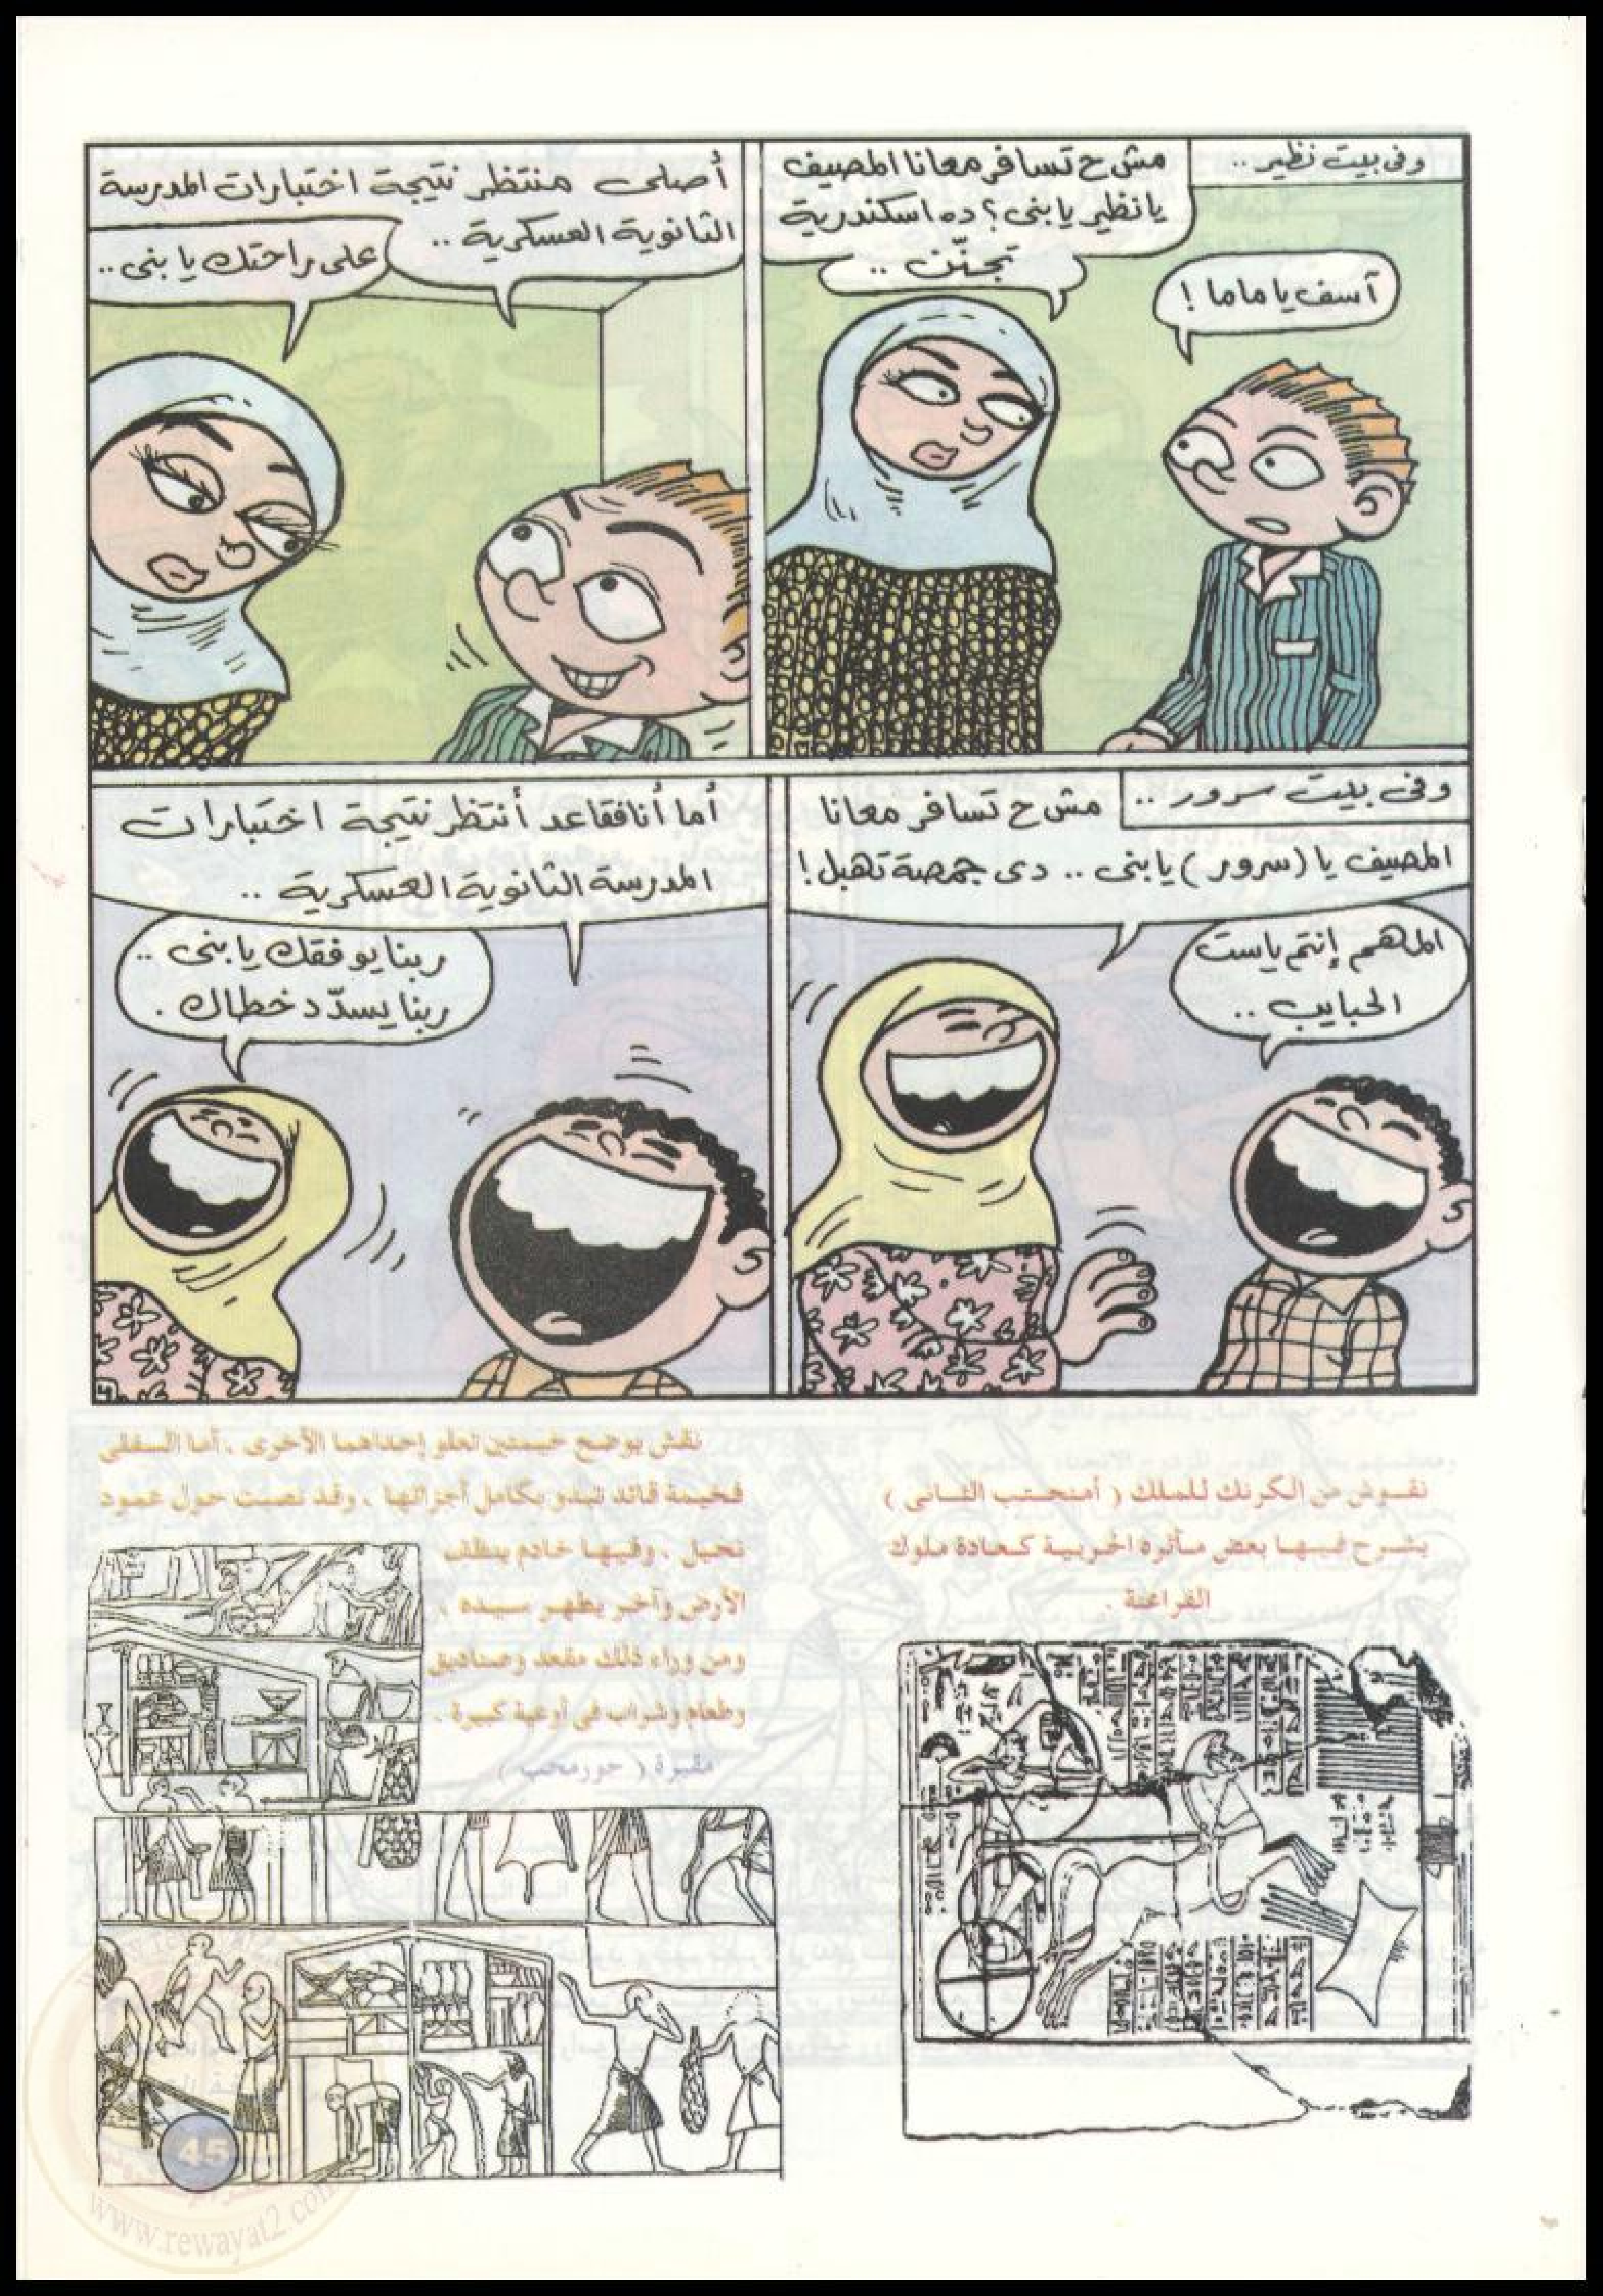 وفى بيت نظير ..
مش ح تسافر معانا المصيف
يا نظير يا بنى ؟ ده اسكندرية
تجنّن ..
آسف يا ماما !
أصلى منتظر نتيجة اختبارات المدرسة
الثانوية العسكرية ..
على راحتك يا بنى ..
وفى بيت سرور ..
مش ح تسافر معانا
المصيف يا (سرور) يا بنى .. دى جمصة تهبل !
المهم إنتم ياست
الحبايب ..
أما أنا فقاعد أنتظر نتيجة اختبارات
المدرسة الثانوية العسكرية ..
ربنا يوفقك يا بنى ..
ربنا يسدّد خطاك .
نقوش من الكرنك للملك ( أمنحتب الثانى )
يشرح فيها بعض مآثره الحربية كعادة ملوك
الفراعنة .
نقش يوضح خيمتين تعلو إحداهما الأخرى ، أما السفلى
فخيمة قائد تبدو بكامل أجزائها ، وقد نصبت حول عمود
نحيل ، وفيها خادم ينظف
الأرض وآخر يطهر سيده ،
ومن وراء ذلك مقعد وصناديق
وطعام وشراب فى أوعية كبيرة .
مقبرة ( حورمحب )
45
www.rewayat2.com